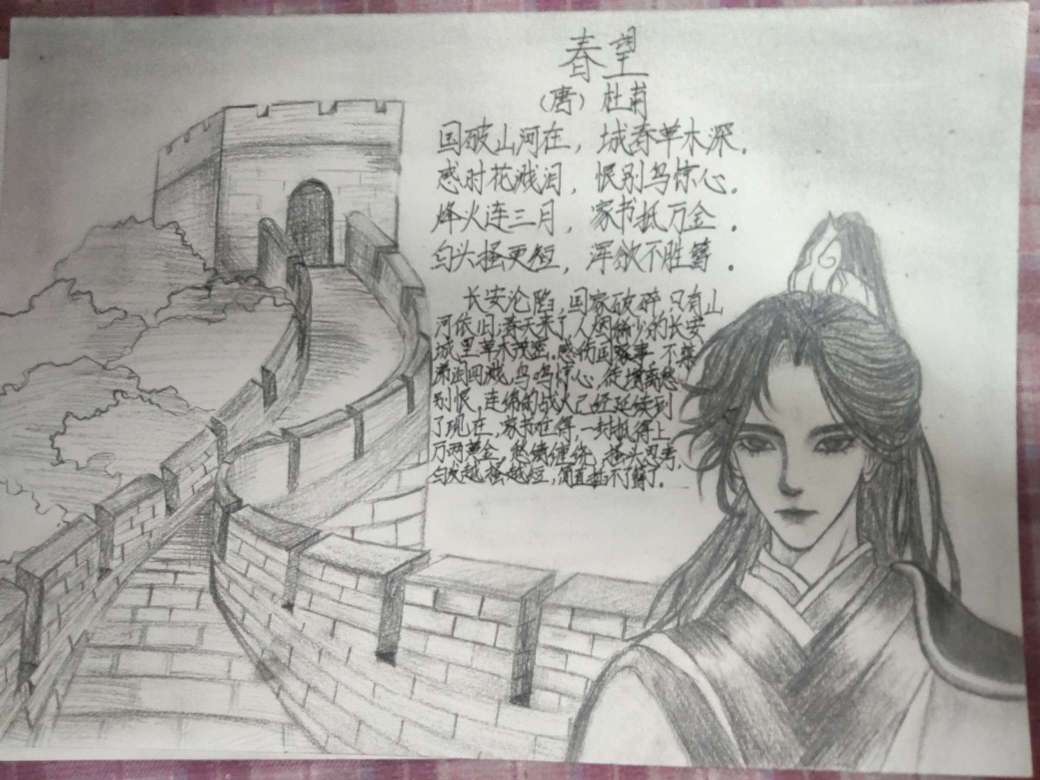 春望
(唐) 杜甫
国破山河在，城春草木深。
感时花溅泪，恨别鸟惊心。
烽火连三月，家书抵万金。
白头搔更短，浑欲不胜簪。
长安沦陷，国家破碎，只有山
河依旧；春天来了，人烟稀少的长安
城里草木茂密。感伤国家事，不禁
涕泪四溅，鸟鸣惊心，徒增离愁
别恨，连绵的战火已经延续到
了现在，家书难得，一封抵得上
万两黄金，愁绪缠绕，搔头思考，
白发越搔越短，简直插不了簪了。